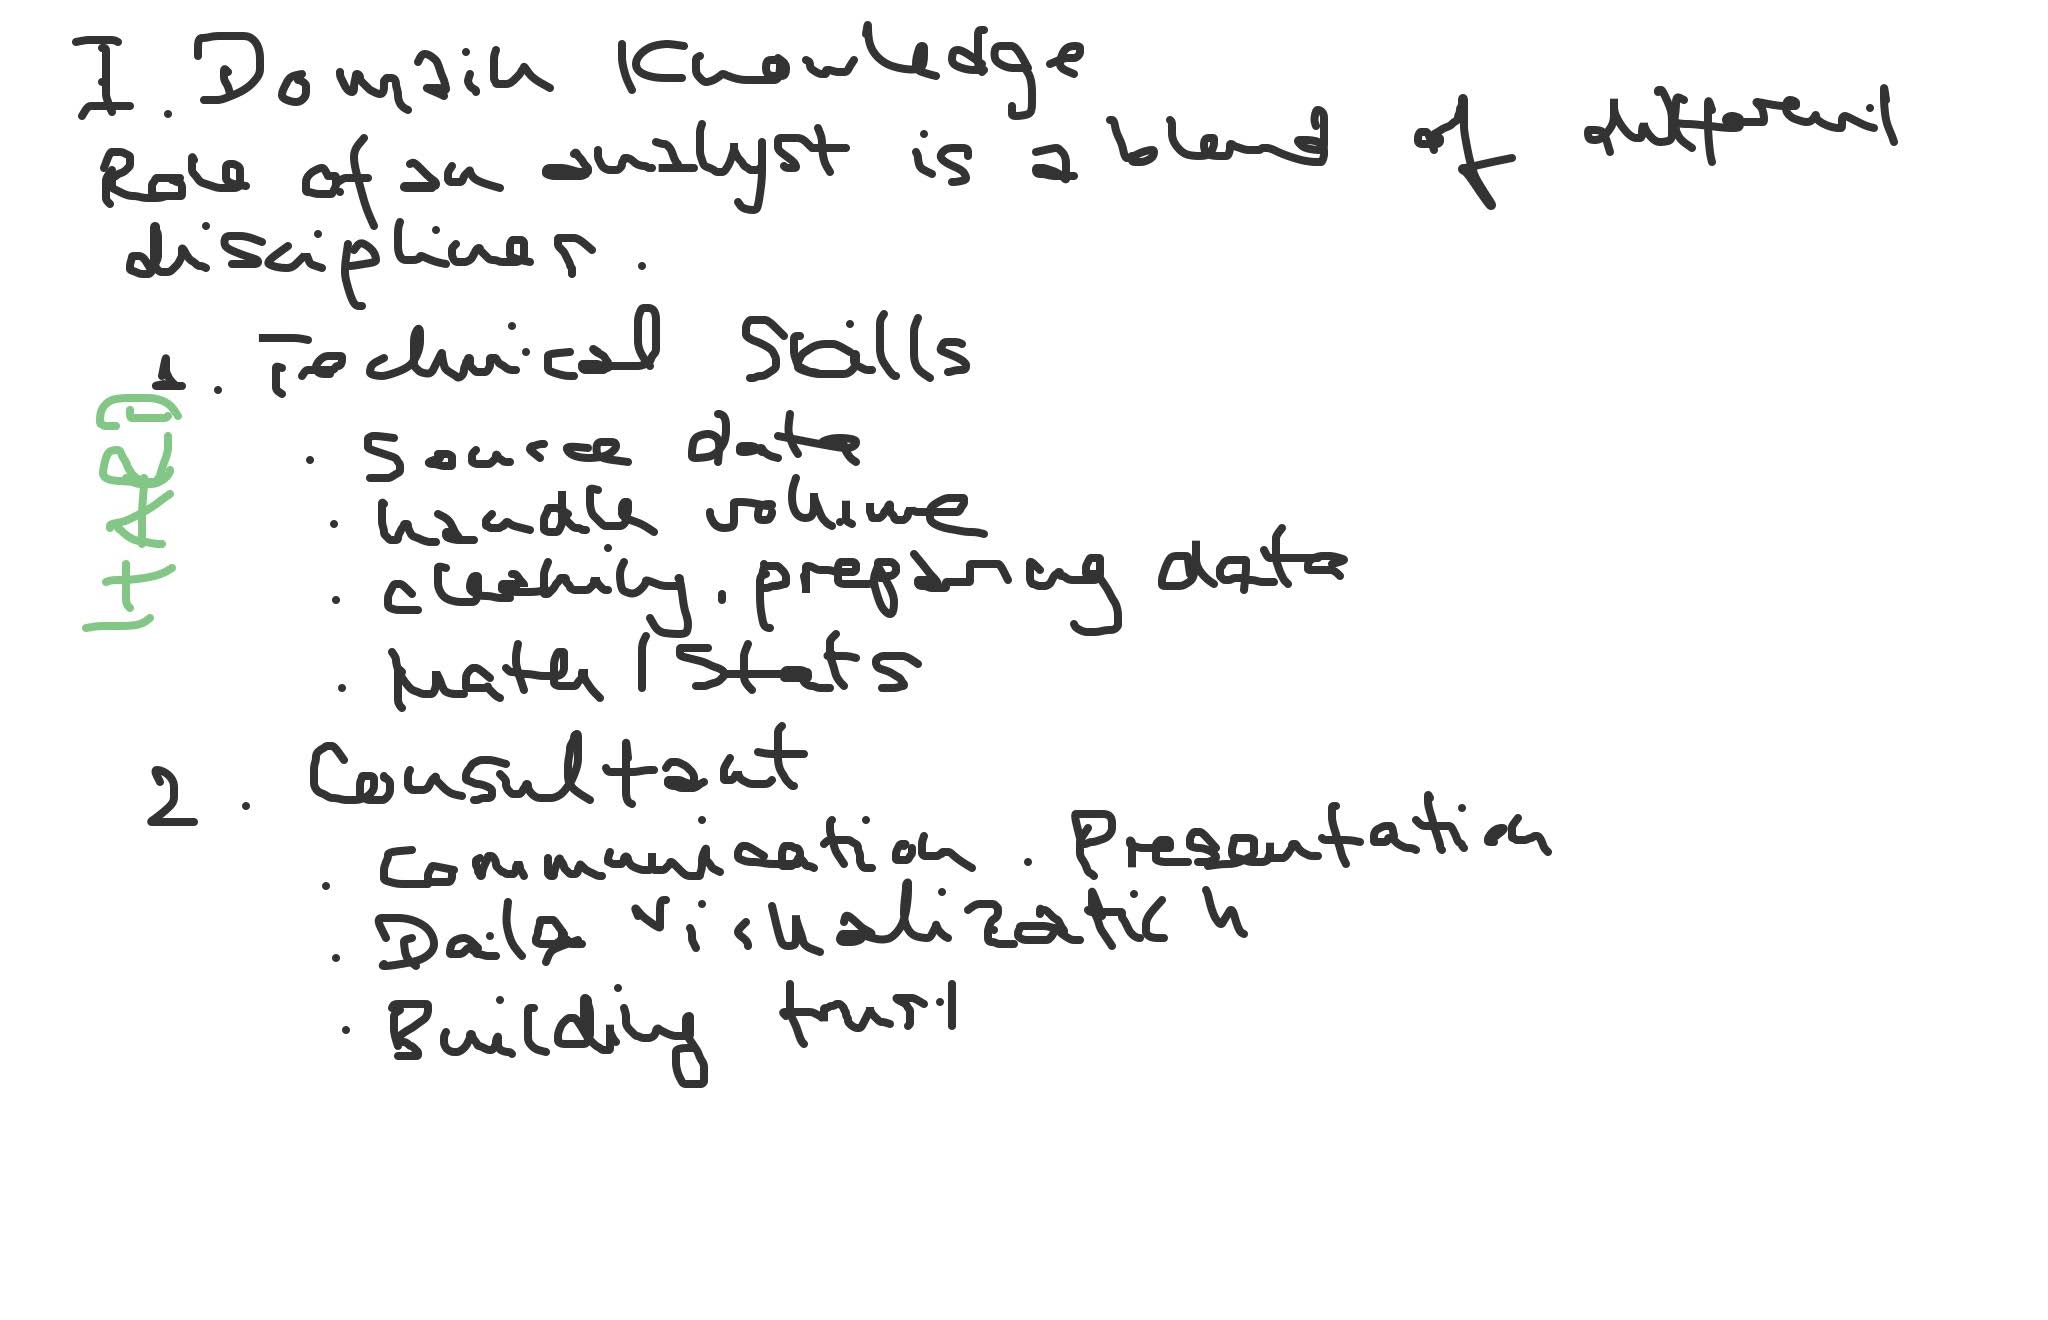 I. Domain Knowledge
Role of an analyst is a blend of different
disciplines.
1. Technical Skills
HARD
. Source data
. handle volume
. cleaning, preparing data
. Math / Stats
2. Consultant
. Communication. Presentation
. Data visualization
. Building trust